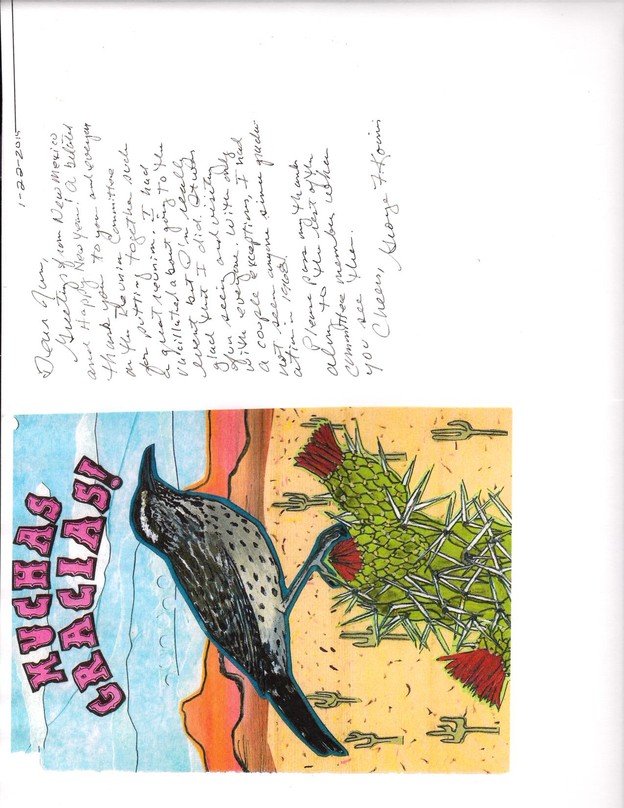 1-22-2014
Dear
Greetings from New Mexico
and Happy New Year! A belated
thank you to you and everyone
on the Reunion Committee
for putting together such
a great reunion. I had
vacillated about going to the
event but I'm really
glad that I did.
fun seeing and visiting
with everyone. With only
a couple exceptions, I had
not seen anyone since gradu-
ation in
Please pass my thanks
along to the rest of the
committee members when
you see them.
Cheers, George
MUCHAS
GRACIAS!